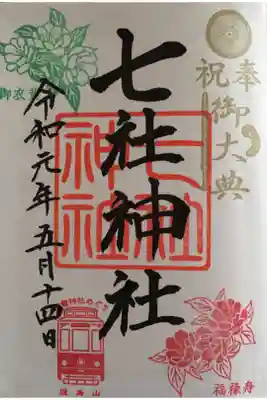 奉祝御大典
七社神社
七社神社
令和元年五月十四日
御衣
神社めぐり
飛鳥山
福禄舟